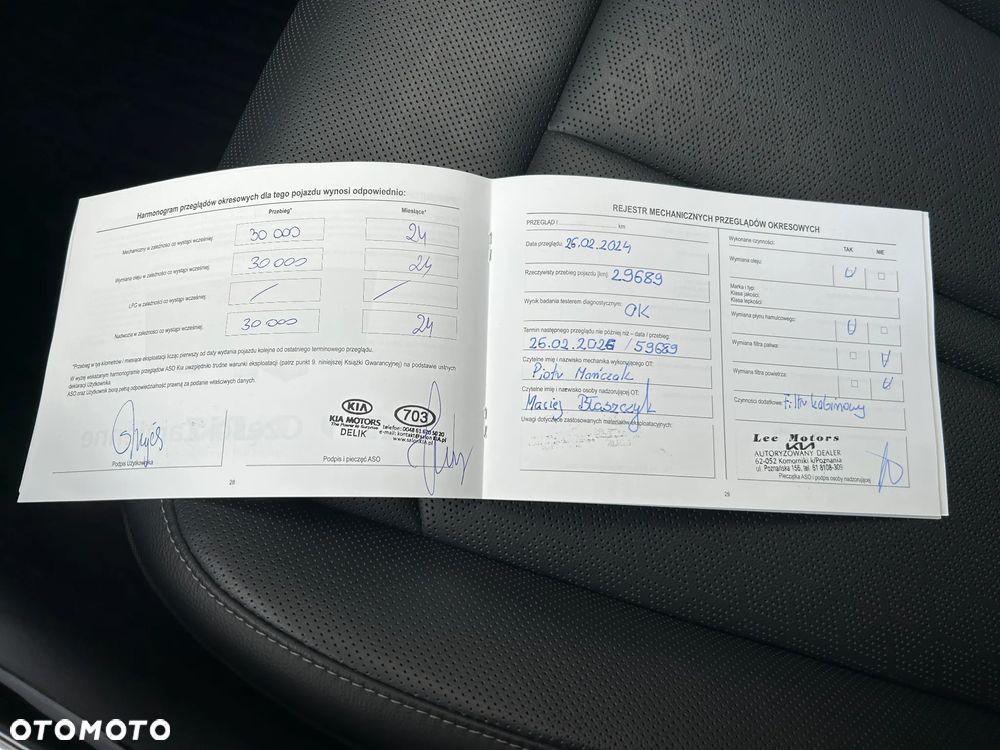 Harmonogram przeglądów okresowych dla tego pojazdu wynosi odpowiednio:
Przebieg* Miesiące*
Mechaniczny w zależności co wystąpi wcześniej: 30 000 24
Wymiana oleju w zależności co wystąpi wcześniej: 30 000 24
LPG w zależności co wystąpi wcześniej: / /
Nadwozia w zależności co wystąpi wcześniej: 30 000 24
*Przebieg w tys kilometrów i miesiące eksploatacji licząc pierwszy od daty wydania pojazdu kolejna od ostatniego terminowego przeglądu.
W wyżej wskazanym harmonogramie przeglądów ASO Kia uwzględniło trudne warunki eksploatacji (patrz punkt 9. niniejszej Książki Gwarancyjnej) na podstawie ustnych
deklaracji Użytkownika.
ASO oraz Użytkownik biorą pełną odpowiedzialność prawną za podanie właściwych danych.
KIA
KIA MOTORS
The Power to Surprise
DELIK
703
www.salonKIA.pl
Podpis Użytkownika
Podpis i pieczęć ASO
28
REJESTR MECHANICZNYCH PRZEGLĄDÓW OKRESOWYCH
PRZEGLĄD I .......................... km
Data przeglądu: 26.02.2024
Rzeczywisty przebieg pojazdu [km]: 29689
Wynik badania testerem diagnostycznym: OK
Termin następnego przeglądu nie później niż - data / przebieg:
26.02.2026 / 59689
Czytelne imię i nazwisko mechanika wykonującego OT:
Piotr Mańczak
Czytelne imię i nazwisko osoby nadzorującej OT:
Maciej Błaszczyk
Uwagi dotyczące zastosowanych materiałów eksploatacyjnych:
Wykonane czynności: TAK NIE
Wymiana oleju:
Marka i typ:
Klasa jakości:
Klasa lepkości:
Wymiana płynu hamulcowego:
Wymiana filtra paliwa:
Wymiana filtra powietrza:
Czynności dodatkowe: Filtr kabinowy
Lee Motors
KIA
AUTORYZOWANY DEALER
62-052 Komorniki k/Poznania
ul. Poznańska 156, tel. 61 8108-309
Pieczątka ASO i podpis osoby nadzorującej
29
OTOMOTO